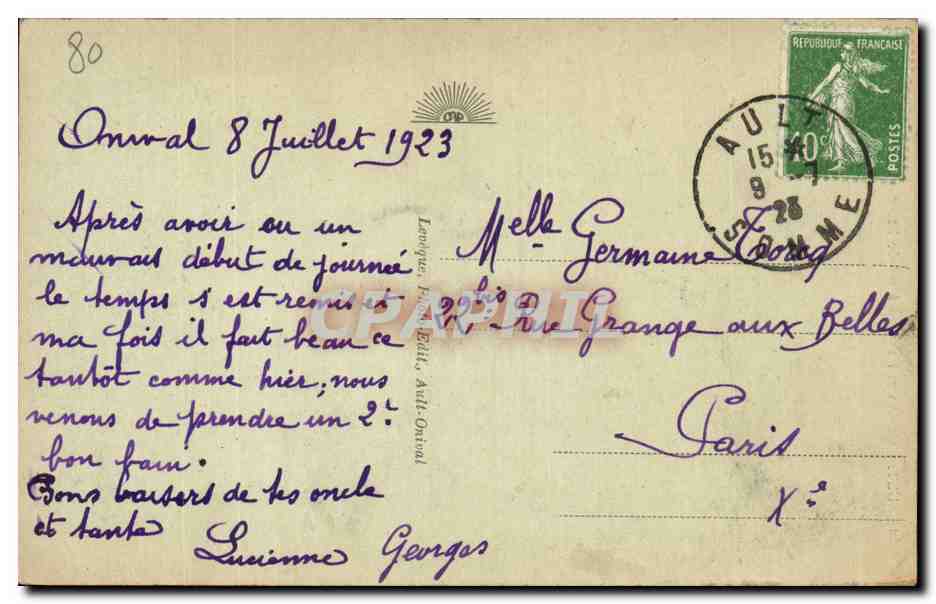 80
Onival 8 Juillet 1923
Après avoir eu un
mauvais début de journée
le temps s'est remis et
ma fois il fait beau ce
tantôt comme hier, nous
venons de prendre un 2t.
bon bain.
Bons baisers de tes oncle
et tante
Lucienne Georges
CAP
Levêque, Edit., Ault-Onival
REPUBLIQUE FRANÇAISE
10c
POSTES
AULT
15
9 -7
23
SOMME
Melle Germaine
22bis, Rue Grange aux Belles
Paris
Xe
CPAPHIL